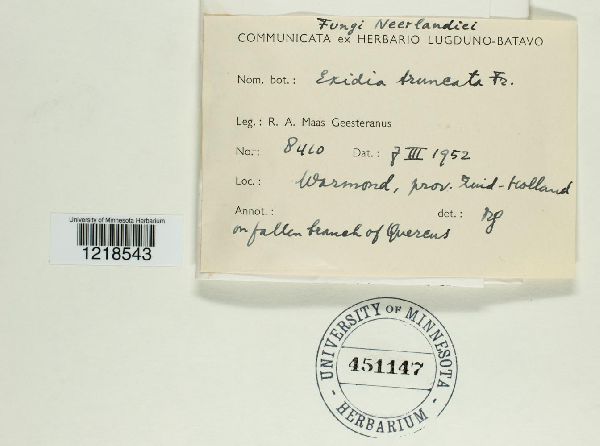 Fungi Neerlandici
COMMUNICATA ex HERBARIO LUGDUNO-BATAVO
Nom. bot.: Exidia truncata Fr.
Leg.: R. A. Maas Geesteranus
No.: 8460 Dat.: 7 III 1952
Loc.: Warmond, prov. Zuid-Holland
Annot.: det.:
on fallen branch of Quercus
University of Minnesota Herbarium
1218543
UNIVERSITY OF MINNESOTA
451147
HERBARIUM